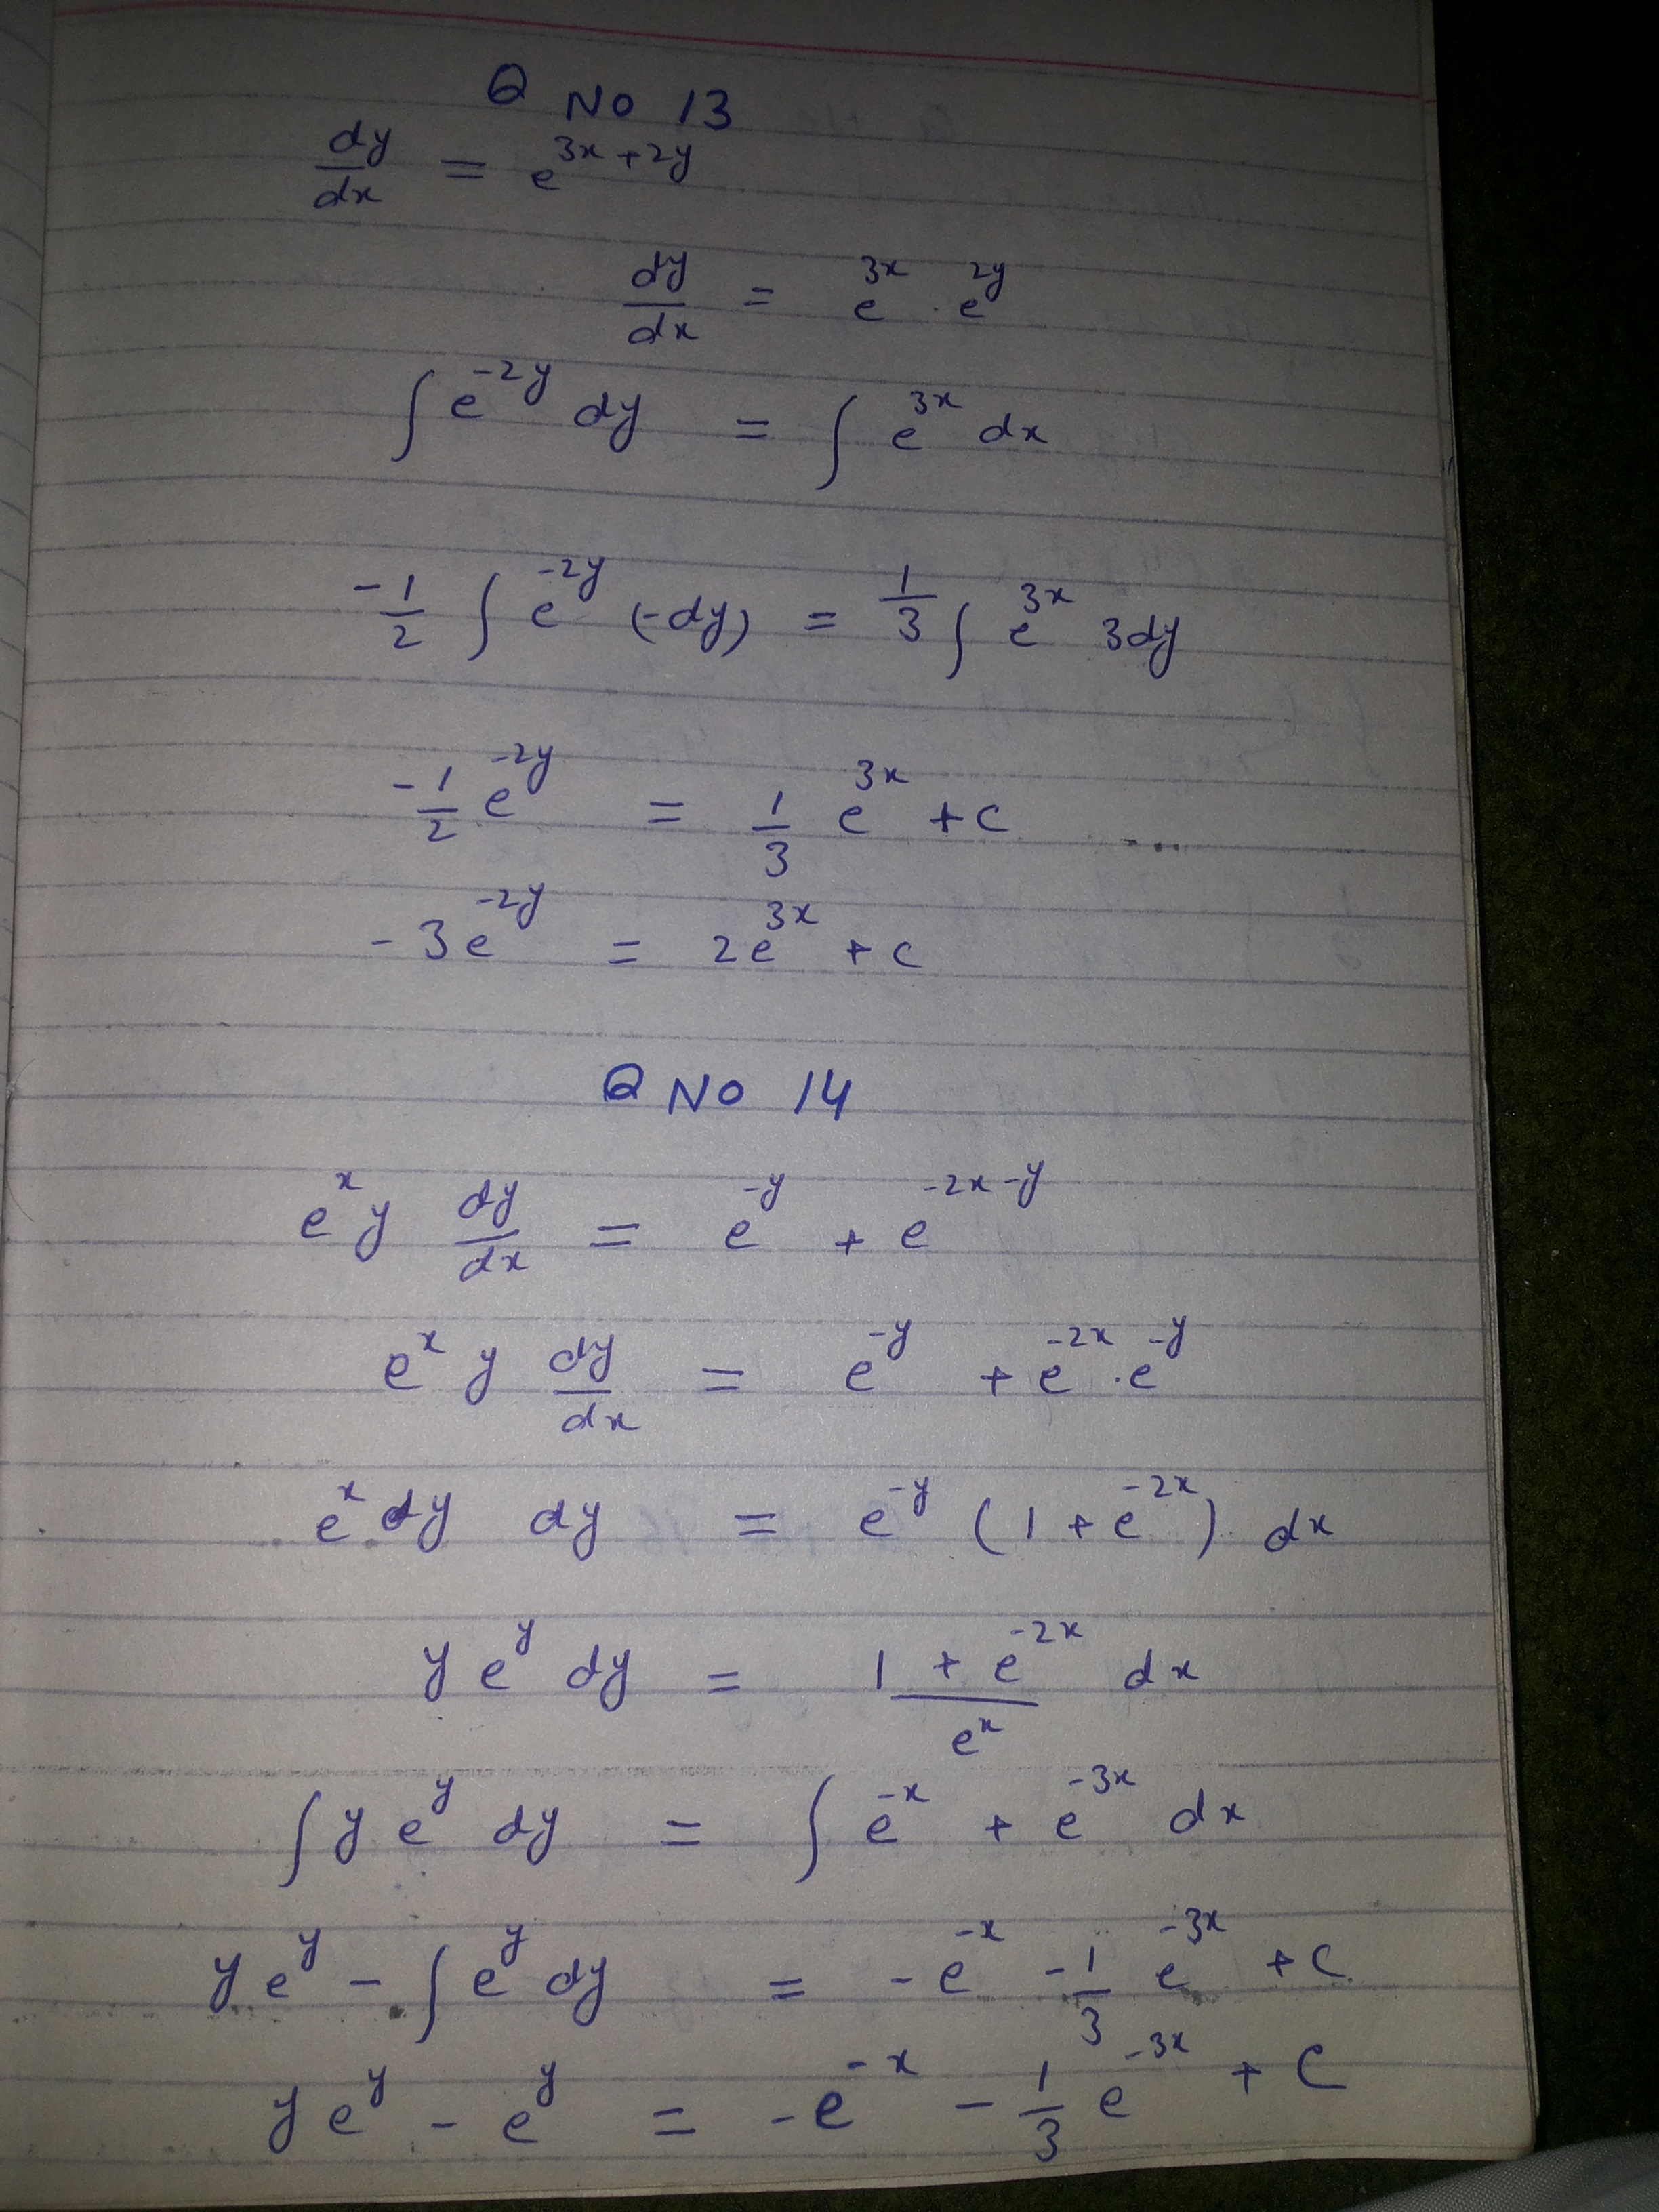 Q No 13
dy/dx = e^{3x+2y}
dy/dx = e^{3x} . e^{2y}
∫ e^{-2y} dy = ∫ e^{3x} dx
-1/2 ∫ e^{-2y} (-dy) = 1/3 ∫ e^{3x} 3dy
-1/2 e^{-2y} = 1/3 e^{3x} + c
-3e^{-2y} = 2e^{3x} + c
Q No 14
e^x y dy/dx = e^{-y} + e^{-2x-y}
e^x y dy/dx = e^{-y} + e^{-2x} . e^{-y}
e^x dy dy = e^{-y} (1 + e^{-2x}) dx
y e^y dy = (1 + e^{-2x})/e^x dx
∫ y e^y dy = ∫ e^{-x} + e^{-3x} dx
y e^y - ∫ e^y dy = -e^{-x} - 1/3 e^{-3x} + c
y e^y - e^y = -e^{-x} - 1/3 e^{-3x} + C